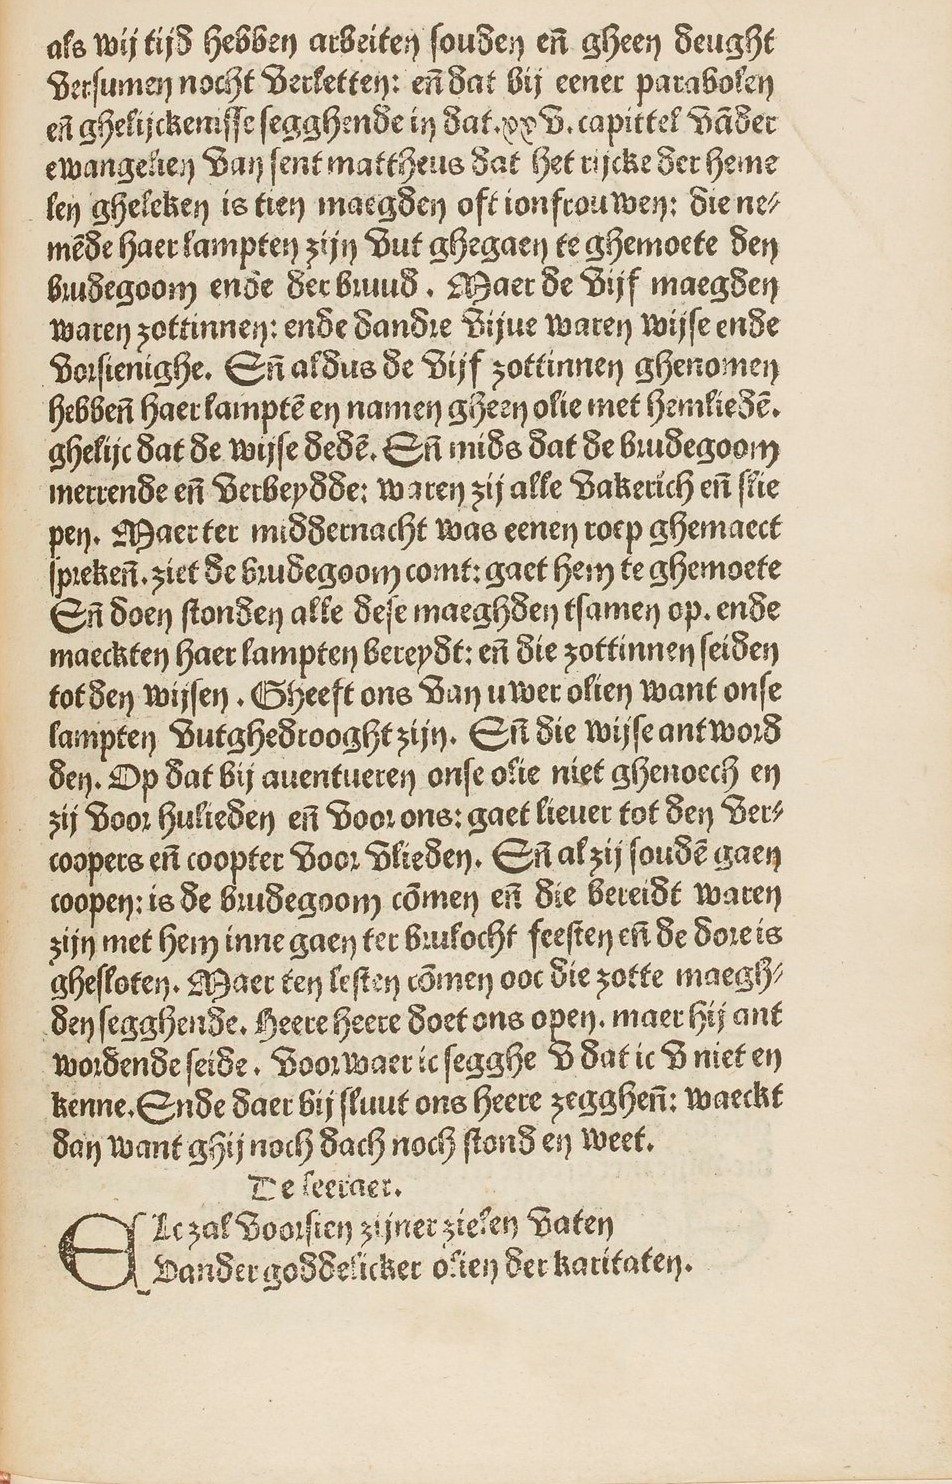 als wij tijd hebben arbeiten souden en̄ gheen deught
versumen nocht verletten: en̄ dat bij eener parabolen
en̄ ghelijckenisse segghende in dat.xxv. capittel vāder
ewangelien van sent mattheus dat het rijcke der heme
len gheleken is tien maegden oft ionfrouwen: die ne⸗
mēde haer lampten zijn vut ghegaen te ghemoete den
brudegoom ende der bruud. Maer de vijf maegden
waren zottinnen: ende dandre vijue waren wijse ende
vorsienighe. En̄ aldus de vijf zottinnen ghenomen
hebben̄ haer lamptē en namen gheen olie met hemliedē.
ghelijc dat de wijse dedē. En̄ mids dat de brudegoom
merrende en̄ verbeydde: waren zij alle vakerich en̄ slie
pen. Maer ter middernacht was eenen roep ghemaect
spreken̄. ziet de brudegoom comt: gaet hem te ghemoete
En̄ doen stonden alle dese maeghden tsamen op. ende
maeckten haer lampten bereydt: en̄ die zottinnen seiden
tot den wijsen. Gheeft ons van uwer olien want onse
lampten vutghedrooght zijn. En̄ die wijse antword
den. Op dat bij auentueren onse olie niet ghenoech en
zij voor hulieden en̄ voor ons: gaet liever tot den ver⸗
coopers en̄ coopter voor vlieden. En̄ al zij soudē gaen
coopen: is de brudegoom cōmen en̄ die bereidt waren
zijn met hem inne gaen ter brulocht feesten en̄ de dore is
ghesloten. Maer ten lesten cōmen ooc die zotte maegh⸗
den segghende. Heere heere doet ons open. maer hij ant
wordende seide. Voorwaer ic segghe v dat ic v niet en
kenne. Ende daer bij sluut ons heere zegghen̄: waeckt
dan want ghij noch dach noch stond en weet.
De leeraer.
Elc zal voorsien zijner zielen vaten
Vander goddelicker olien der karitaten.